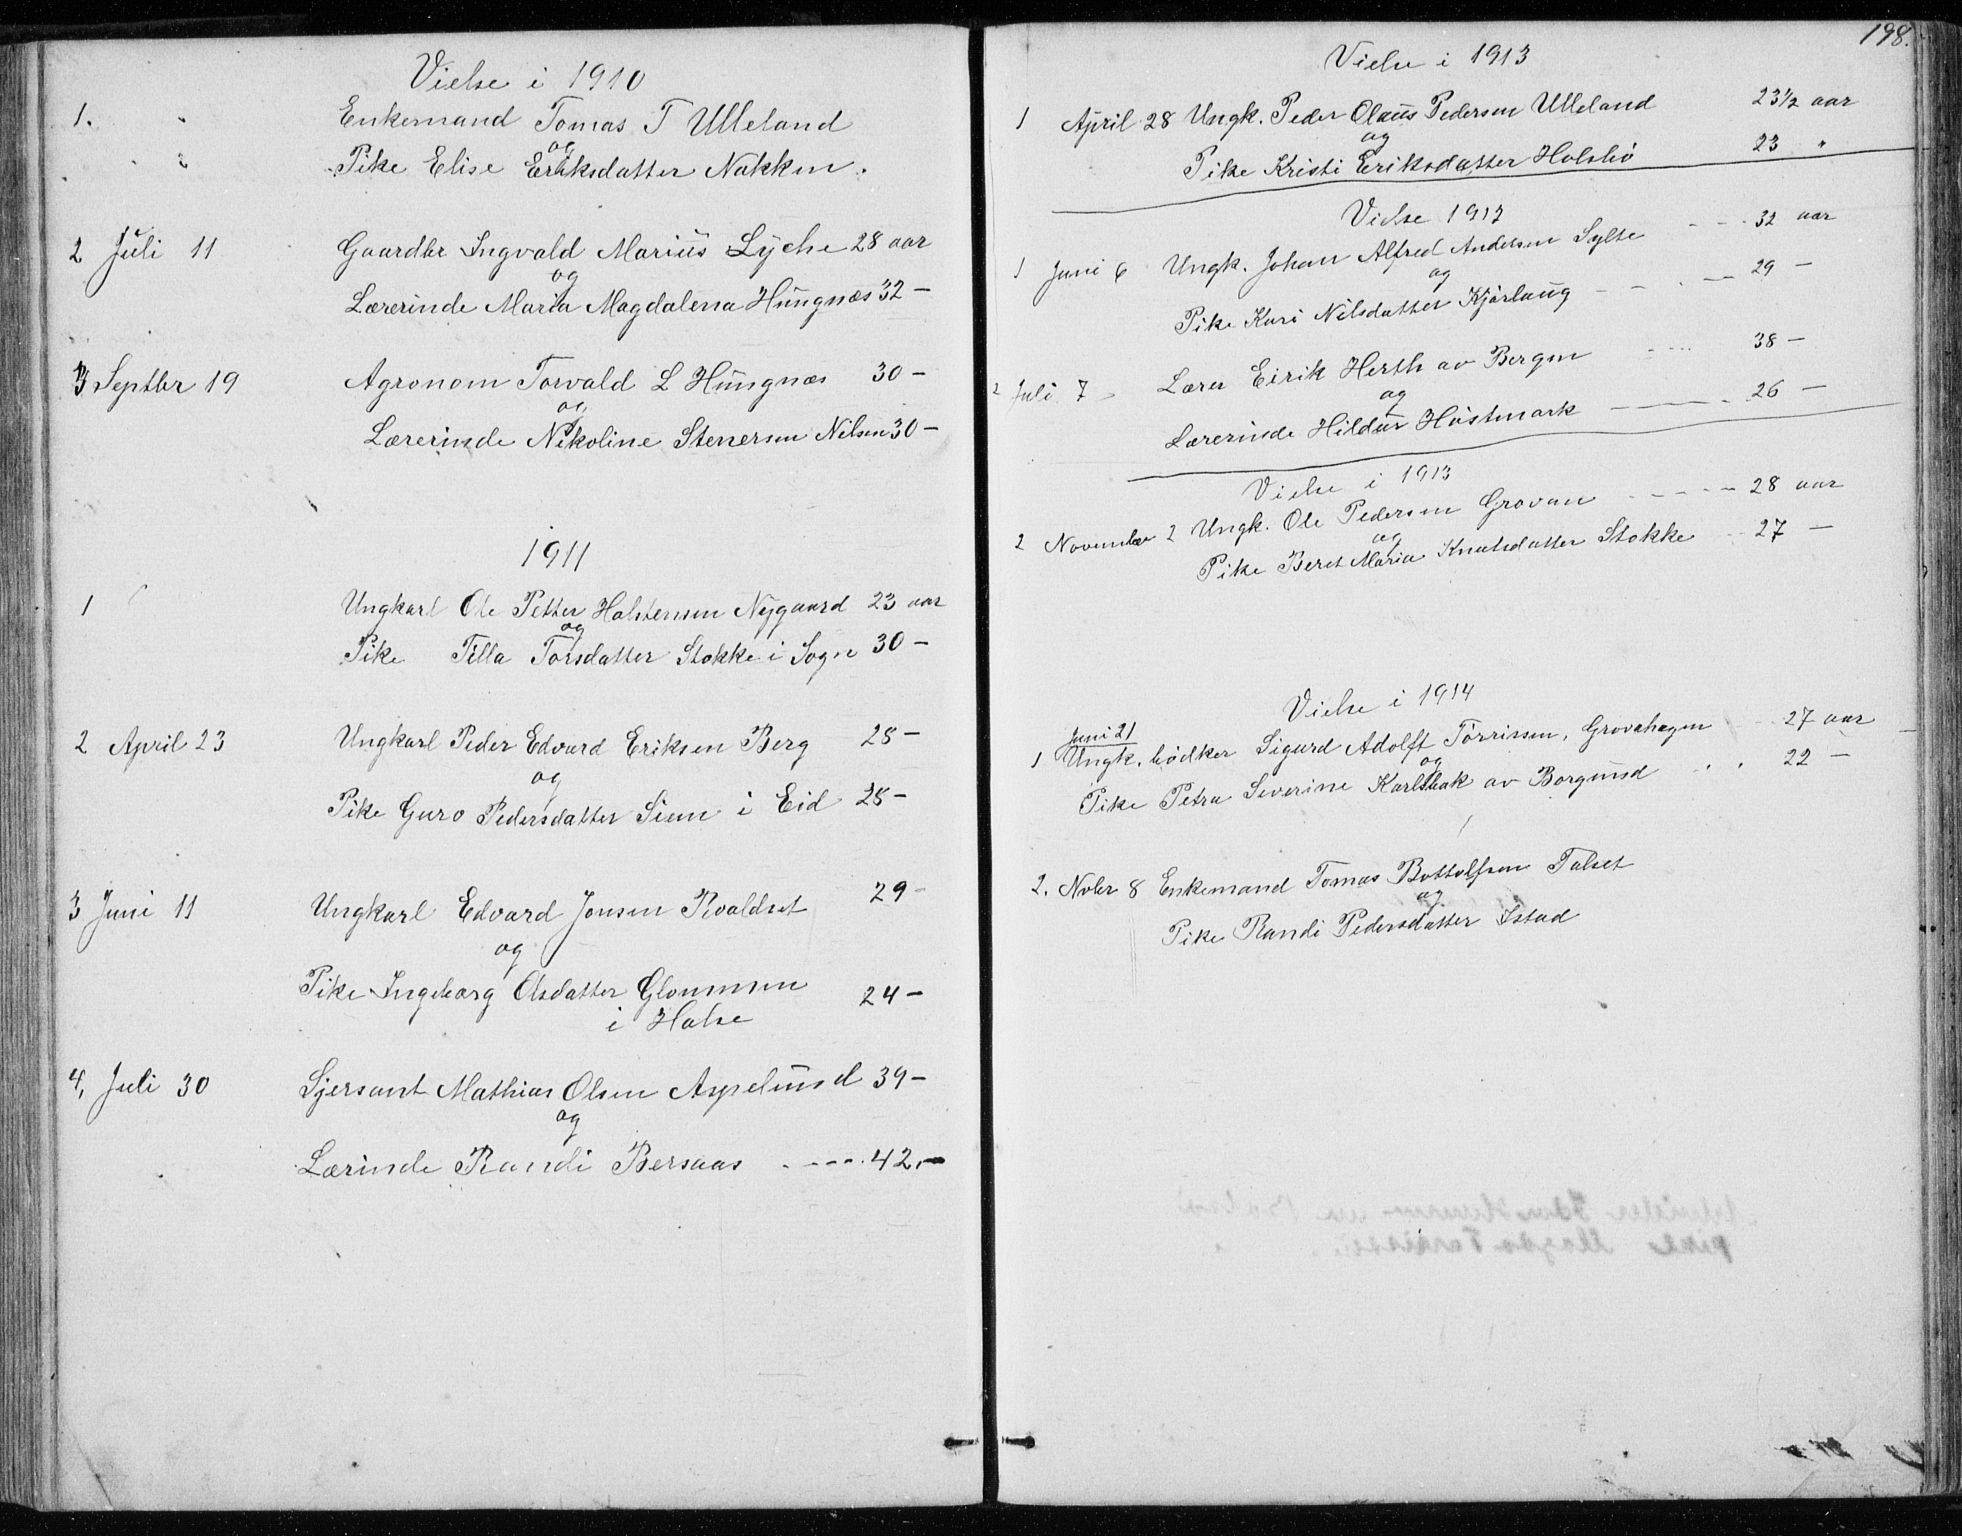 Vielse i 1910
1. " Enkemand Tomas T Ulleland
og
" " Pike Elise Eriksdatter Nakken.
2 Juli 11 Gaardbr Ingvald Marius Lyche 28 aar
og
Lærerinde Maria Magdalena Hungnæs 32 —
3 Septbr 19 Agronom Torvald L Hungnæs 30 —
og
Lærerinde Nikoline Stenersen Nilsen 30 —
1911
1 Ungkarl Ole Petter Holstensen Nygaard 23 aar
og
Pike Tilla Torsdatter Stokke i Sogn 30 —
2 April 23 Ungkarl Peder Edvard Eriksen Berg 28 —
og
Pike Guro Pedersdatter Siem i Eid 28 —
3 Juni 11 Ungkarl Edvard Jonsen Roaldset 29 —
og
Pike Ingeborg Olsdatter Glommen 24 —
i Halse
4, Juli 30 Sjersant Mathias Olsen Aspelund 39 —
og
Lærinde Randi Bersaas . - - - . 42. —
198.
Vielse i 1913
1 April 28 Ungk. Peder Olaus Pedersen Ulleland 23 1/2 aar
og
Pike Kristi Eriksdatter Holsbö 23 "
Vielse 1912
1 Juni 6 Ungk. Johan Alfred Andersen Sylte - - - 32 aar
og
Pike Kari Nilsdatter Kjörlaug — - . — 29 —
2 Juli 7 — Lærer Eirik Herth av Bergen - - - - 38 —
og
Lærerinde Hildur Höstmark — - — - . 26 —
Vielse i 1913
2 November 2 Ungk. Ole Pedersen Grovan - - - - - 28 aar
og
Pike Beret Maria Knutsdatter Stokke - - 27 —
Vielse i 1914
Juni 21
1 Ungk. bödker Sigurd Adolft Törrissen, Grovahagen - - 27 aar
og
Pike Petra Severine Karlsbak av Borgund . . . 22 —
2. Nobr 8 Enkemand Tomas Bottolfsen Talset
og
Pike Randi Pedersdatter Istad